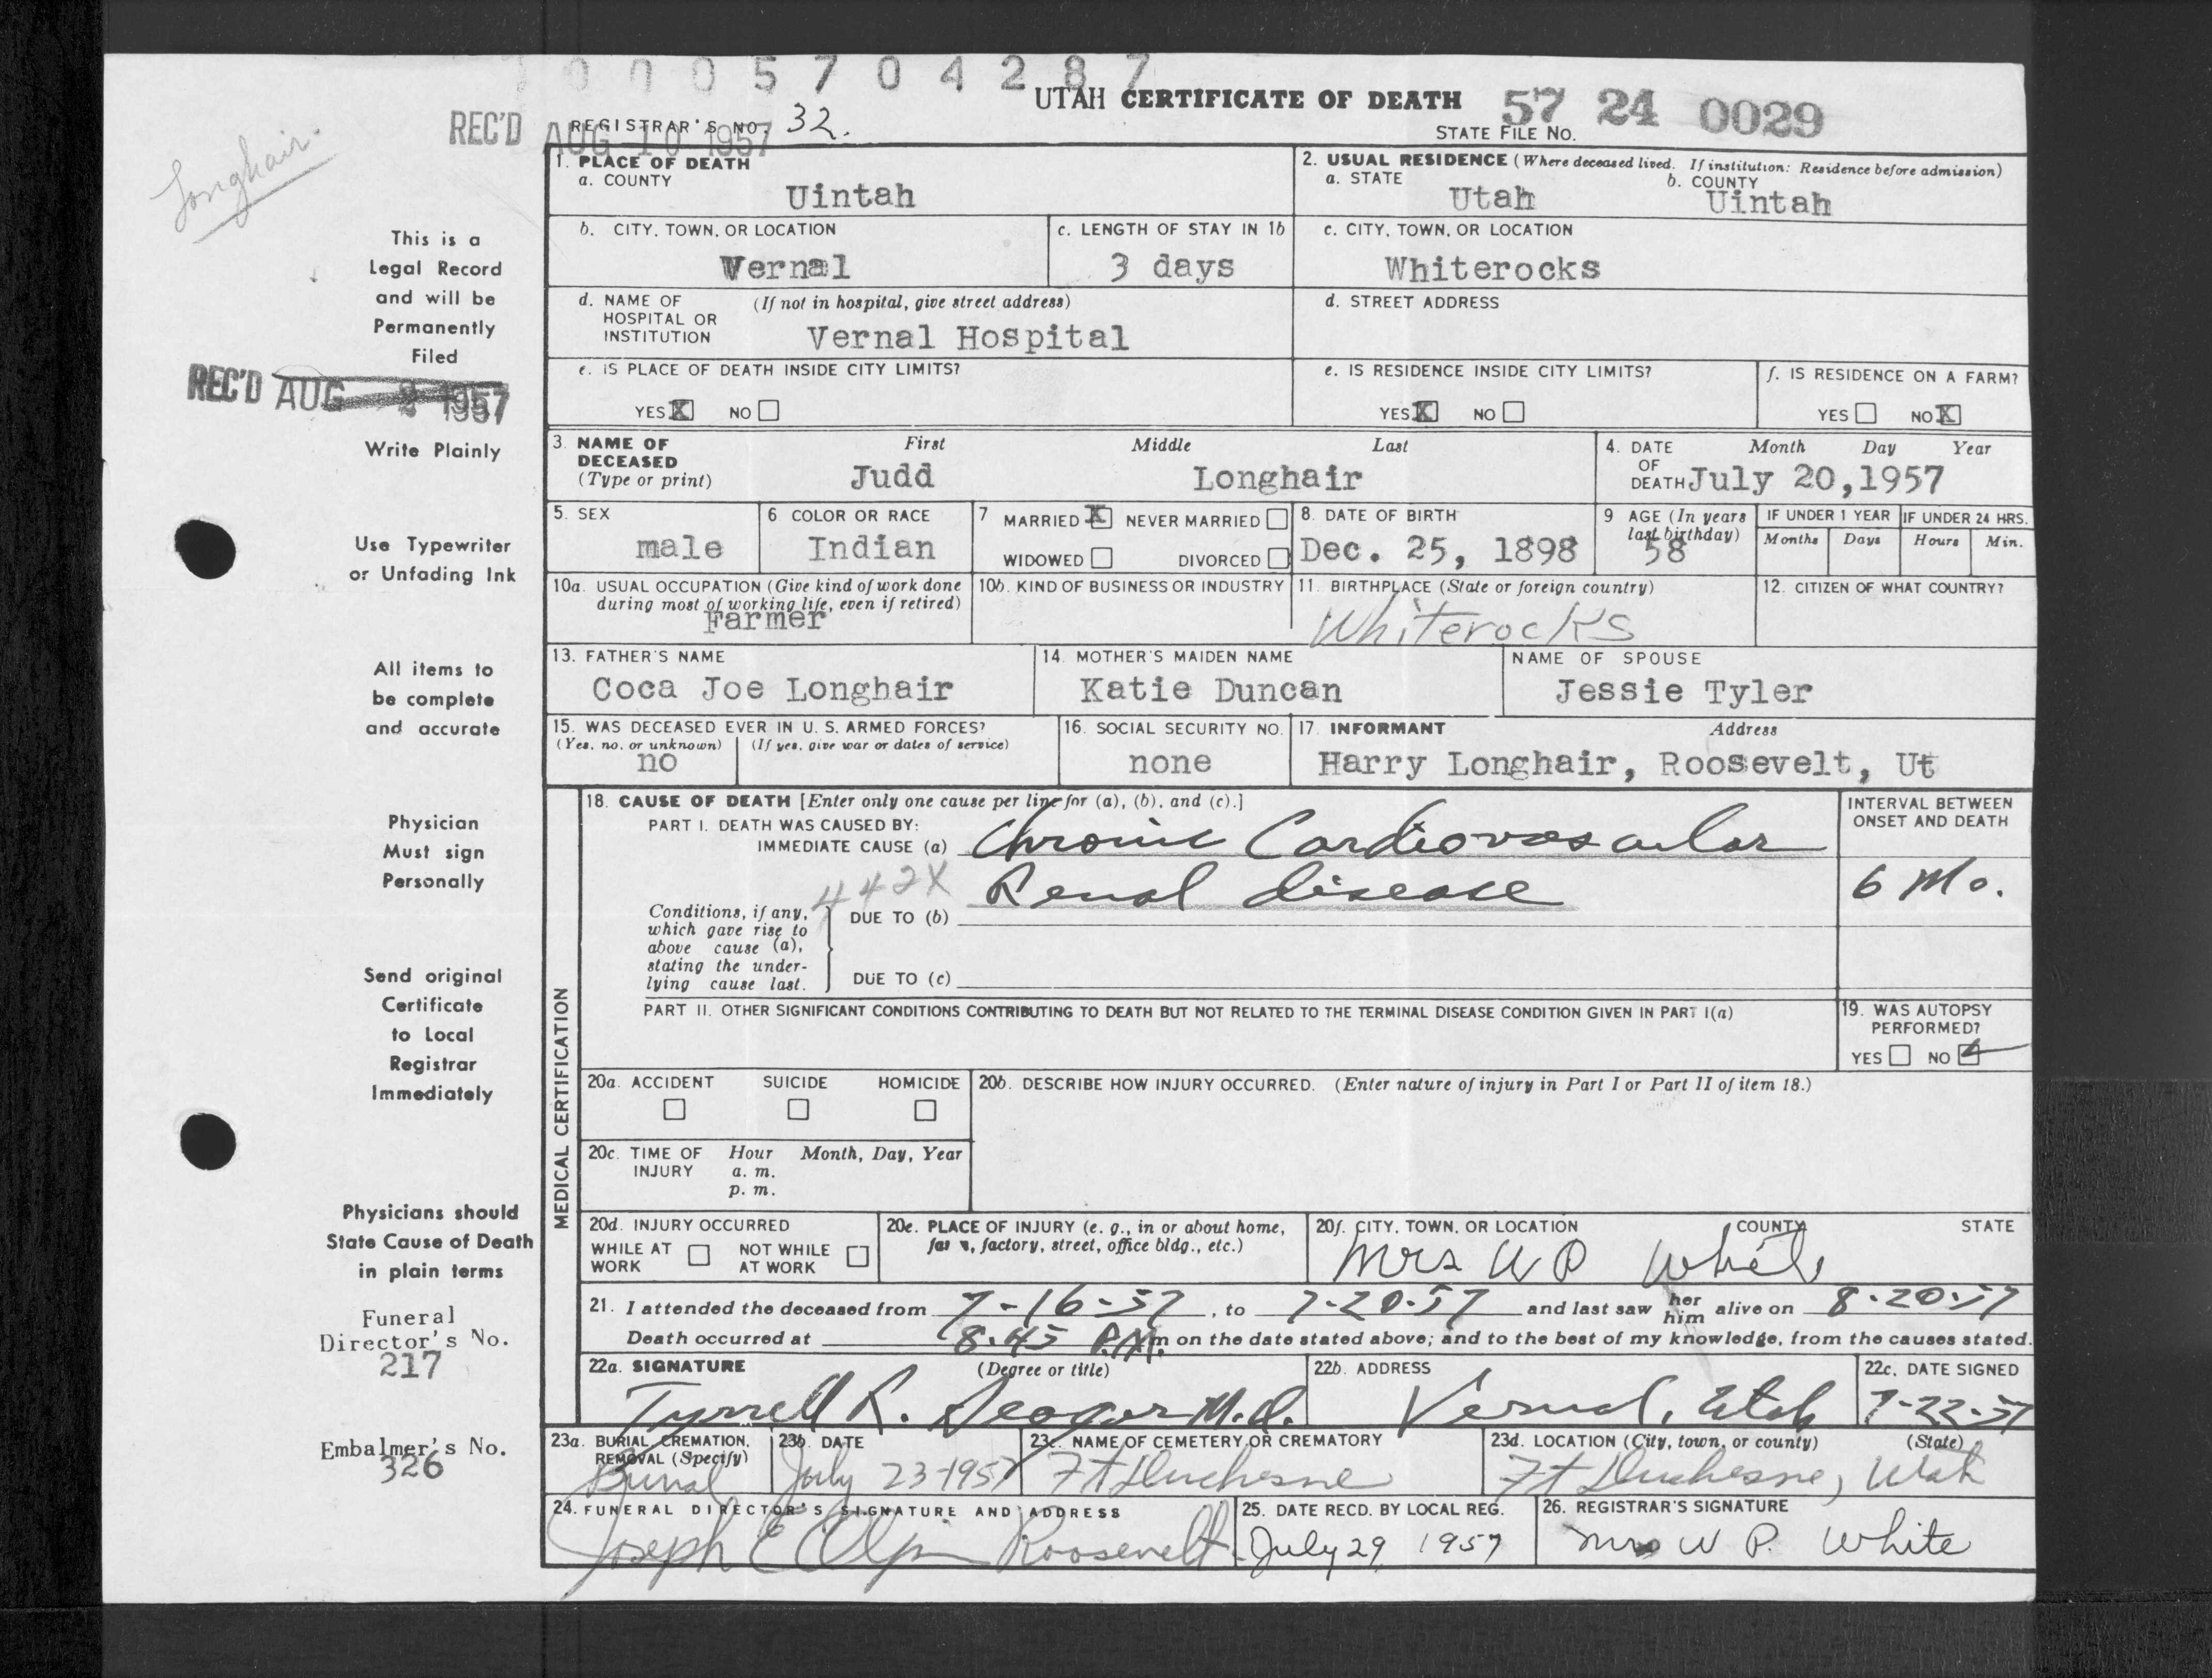 0 0 0 5 7 0 4 2 8 7
UTAH CERTIFICATE OF DEATH
57 24 0029
STATE FILE NO.
REC'D AUG 10 1957
REGISTRAR'S NO. 32.
Longhair.
This is a
Legal Record
and will be
Permanently
Filed
REC'D AUG 2 1957
Write Plainly
Use Typewriter
or Unfading Ink
All items to
be complete
and accurate
Physician
Must sign
Personally
Send original
Certificate
to Local
Registrar
Immediately
Physicians should
State Cause of Death
in plain terms
Funeral
Director's No.
217
Embalmer's No.
326
1. PLACE OF DEATH
a. COUNTY
Uintah
2. USUAL RESIDENCE (Where deceased lived. If institution: Residence before admission)
a. STATE
Utah
b. COUNTY
Uintah
b. CITY, TOWN, OR LOCATION
Vernal
c. LENGTH OF STAY IN 1b
3 days
c. CITY, TOWN, OR LOCATION
Whiterocks
d. NAME OF HOSPITAL OR INSTITUTION (If not in hospital, give street address)
Vernal Hospital
d. STREET ADDRESS
e. IS PLACE OF DEATH INSIDE CITY LIMITS?
YES X NO
e. IS RESIDENCE INSIDE CITY LIMITS?
YES X NO
f. IS RESIDENCE ON A FARM?
YES NO X
3. NAME OF DECEASED (Type or print)
First Middle Last
Judd Longhair
4. DATE OF DEATH
Month Day Year
July 20,1957
5. SEX
male
6 COLOR OR RACE
Indian
7 MARRIED X NEVER MARRIED
WIDOWED DIVORCED
8. DATE OF BIRTH
Dec. 25, 1898
9 AGE (In years last birthday)
58
IF UNDER 1 YEAR
Months Days
IF UNDER 24 HRS.
Hours Min.
10a. USUAL OCCUPATION (Give kind of work done during most of working life, even if retired)
Farmer
10b. KIND OF BUSINESS OR INDUSTRY
11. BIRTHPLACE (State or foreign country)
Whiterocks
12. CITIZEN OF WHAT COUNTRY?
13. FATHER'S NAME
Coca Joe Longhair
14. MOTHER'S MAIDEN NAME
Katie Duncan
NAME OF SPOUSE
Jessie Tyler
15. WAS DECEASED EVER IN U. S. ARMED FORCES?
(Yes, no, or unknown) (If yes, give war or dates of service)
no
16. SOCIAL SECURITY NO.
none
17. INFORMANT Address
Harry Longhair, Roosevelt, Ut
MEDICAL CERTIFICATION
18. CAUSE OF DEATH [Enter only one cause per line for (a), (b), and (c).]
PART I. DEATH WAS CAUSED BY:
IMMEDIATE CAUSE (a) Chronic Cardiovascular
Renal disease
442X
INTERVAL BETWEEN ONSET AND DEATH
6 Mo.
Conditions, if any, which gave rise to above cause (a), stating the underlying cause last.
DUE TO (b)
DUE TO (c)
PART II. OTHER SIGNIFICANT CONDITIONS CONTRIBUTING TO DEATH BUT NOT RELATED TO THE TERMINAL DISEASE CONDITION GIVEN IN PART I(a)
19. WAS AUTOPSY PERFORMED?
YES NO
20a. ACCIDENT SUICIDE HOMICIDE
20b. DESCRIBE HOW INJURY OCCURRED. (Enter nature of injury in Part I or Part II of item 18.)
20c. TIME OF INJURY Hour Month, Day, Year
a. m.
p. m.
20d. INJURY OCCURRED
WHILE AT WORK NOT WHILE AT WORK
20e. PLACE OF INJURY (e. g., in or about home, farm, factory, street, office bldg., etc.)
20f. CITY, TOWN, OR LOCATION COUNTY STATE
Mrs W P White
21. I attended the deceased from 7-16-57, to 7-20-57 and last saw her him alive on 8-20-57
Death occurred at 8:45 P.M. m on the date stated above; and to the best of my knowledge, from the causes stated.
22a. SIGNATURE (Degree or title)
Tyrrell R. Seager M.D.
22b. ADDRESS
Vernal, Utah
22c. DATE SIGNED
7-22-57
23a. BURIAL, CREMATION, REMOVAL (Specify)
Burial
23b. DATE
July 23-1957
23c. NAME OF CEMETERY OR CREMATORY
Ft Duchesne
23d. LOCATION (City, town, or county) (State)
Ft Duchesne, Utah
24. FUNERAL DIRECTOR'S SIGNATURE AND ADDRESS
Joseph E Olpin Roosevelt
25. DATE RECD. BY LOCAL REG.
July 29 1957
26. REGISTRAR'S SIGNATURE
Mrs W P. White